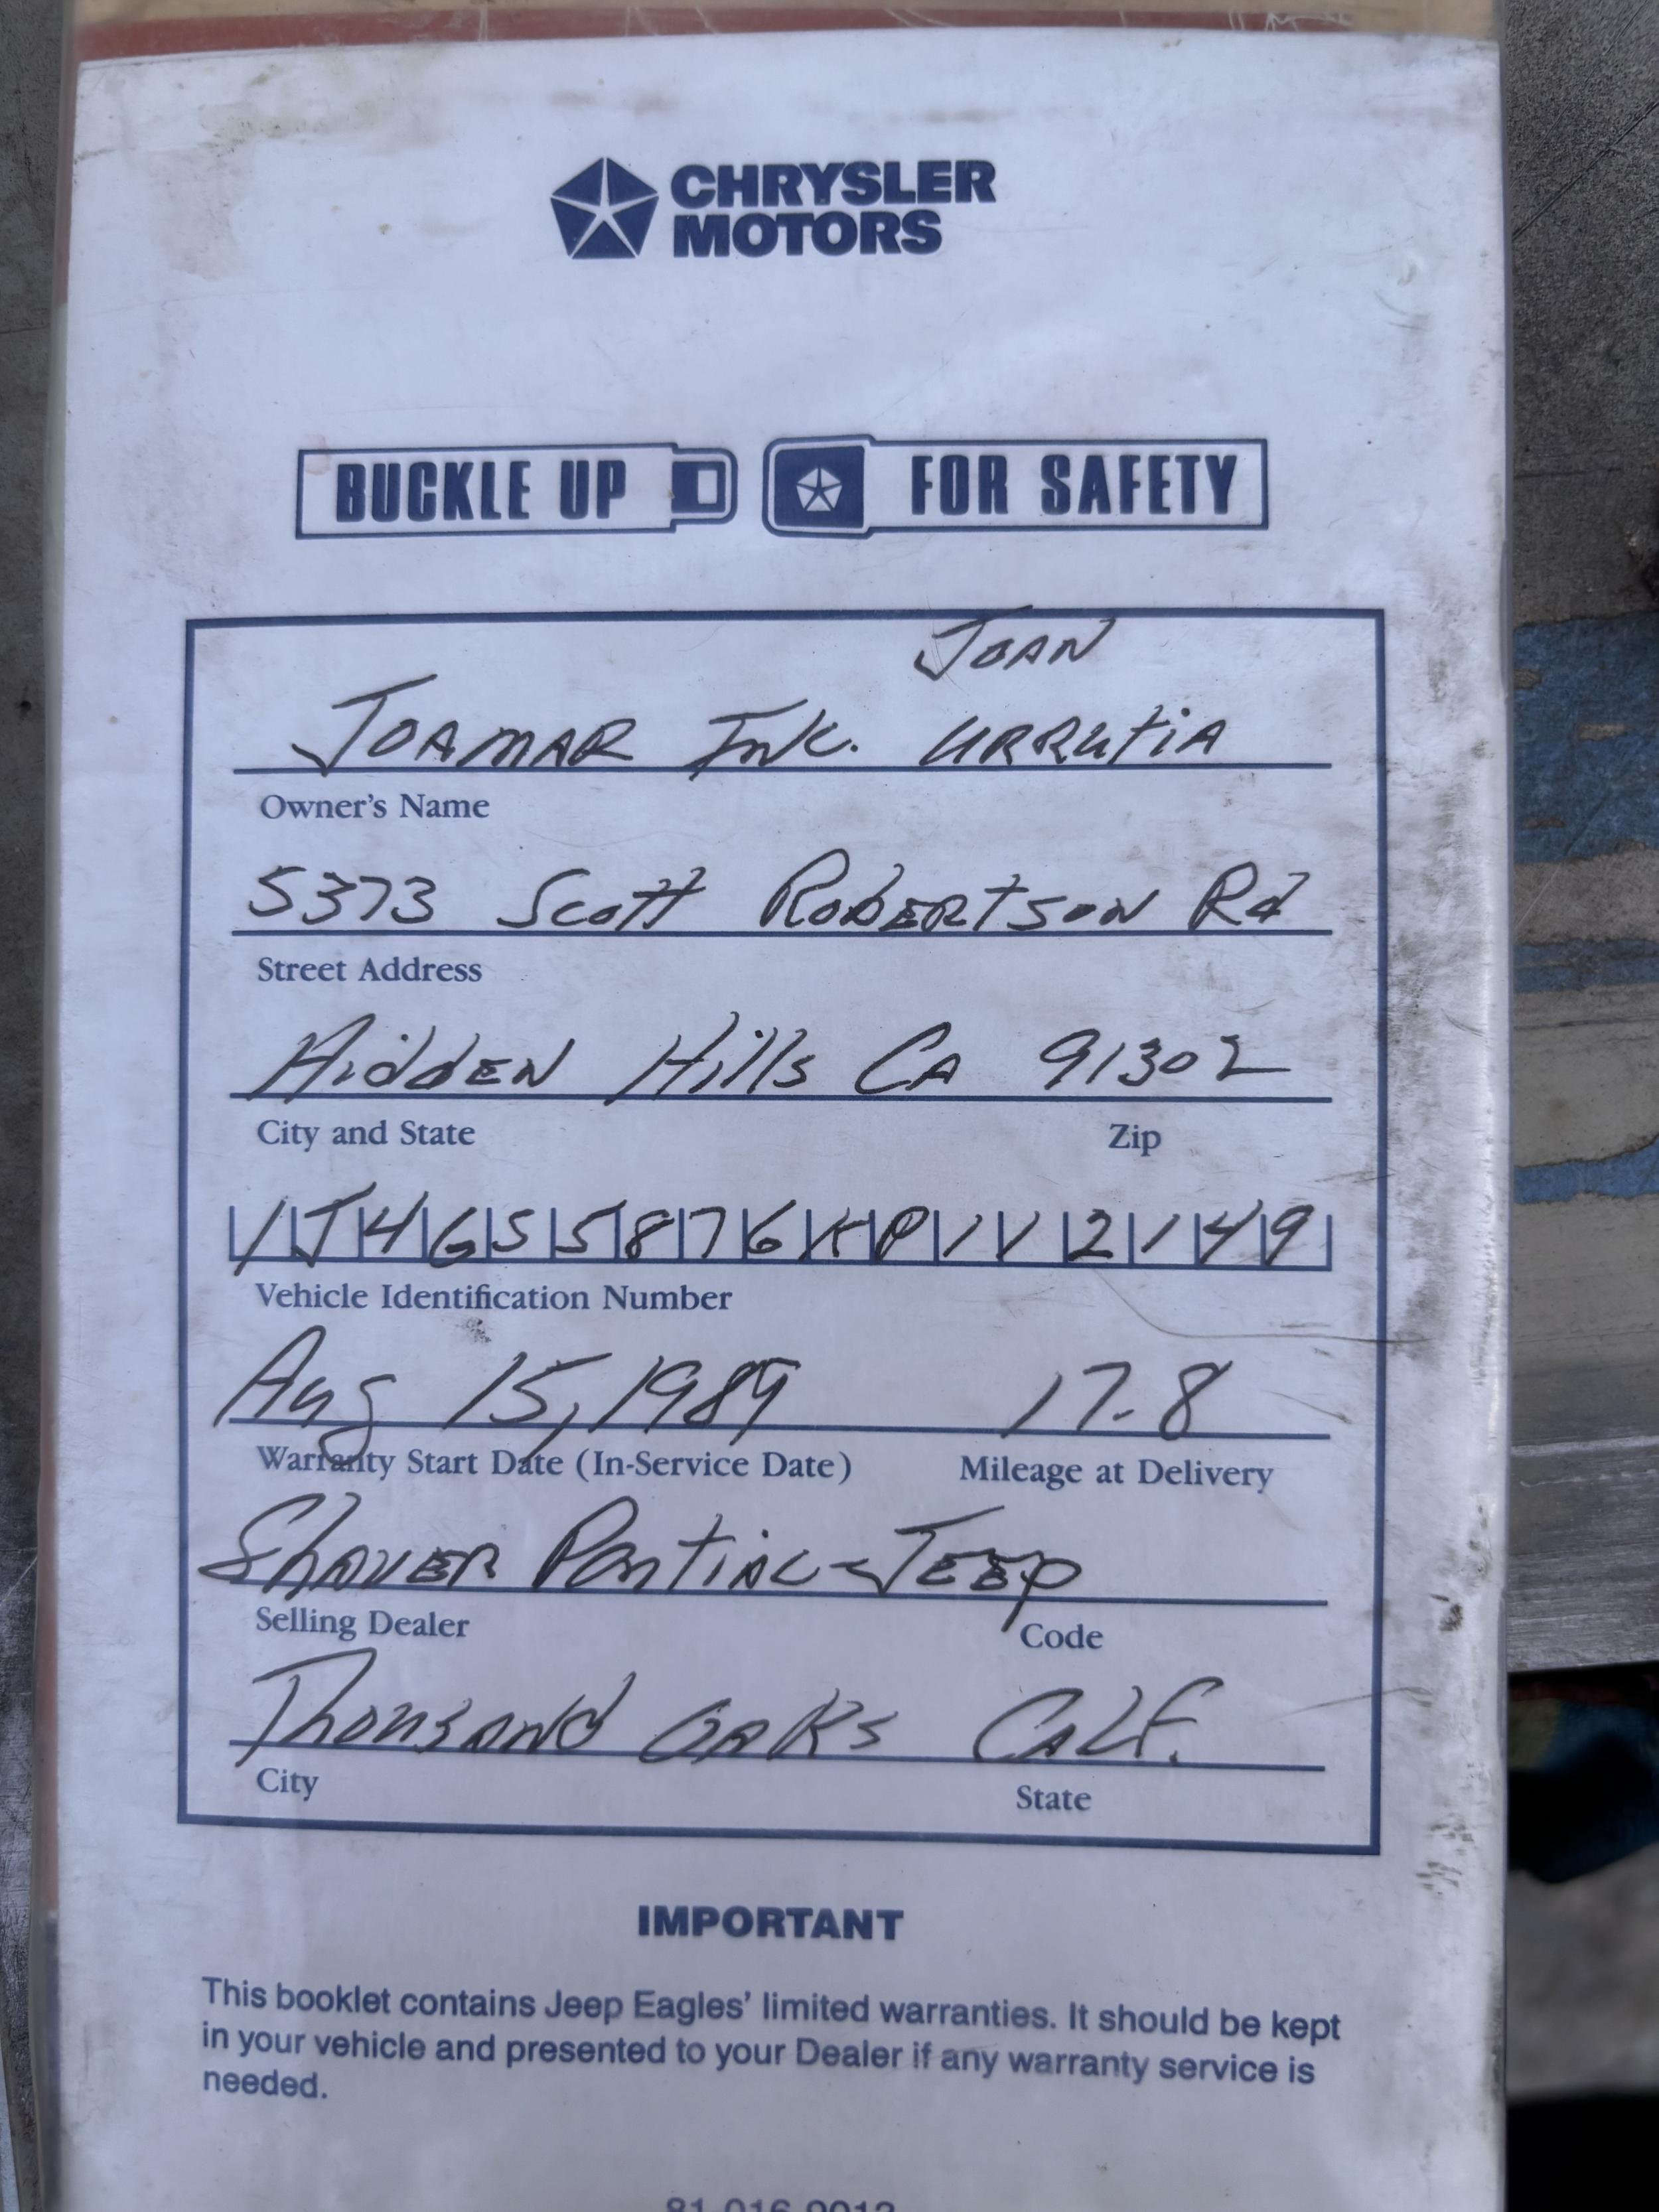 CHRYSLER
MOTORS
BUCKLE UP FOR SAFETY
JOAN
JOAMAR INC. URRUTIA
Owner's Name
5373 Scott ROBERTSON Rd
Street Address
HiddEN Hills CA 91302
City and State Zip
1J4GS5876KP112149
Vehicle Identification Number
Aug 15, 1989 17.8
Warranty Start Date (In-Service Date) Mileage at Delivery
ShAVER PontiAC-JEEp
Selling Dealer Code
ThousANd OAKs CALF.
City State
IMPORTANT
This booklet contains Jeep Eagles' limited warranties. It should be kept
in your vehicle and presented to your Dealer if any warranty service is
needed.